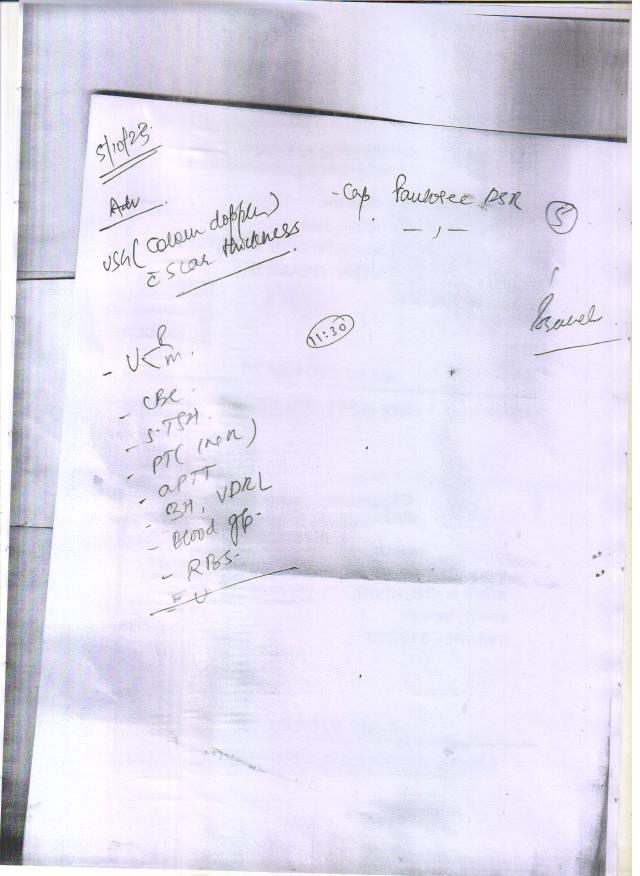 5/10/23.
Adv
USG (Colour doppler)
c̄ Scar thickness
- Cap Pantosec DSR
5
- , -
11:30
- U < R
M.
- CBC.
- S-TSH.
- PT (INR)
- aPTT
- 3H, VDRL
- Blood gp.
- RBS.